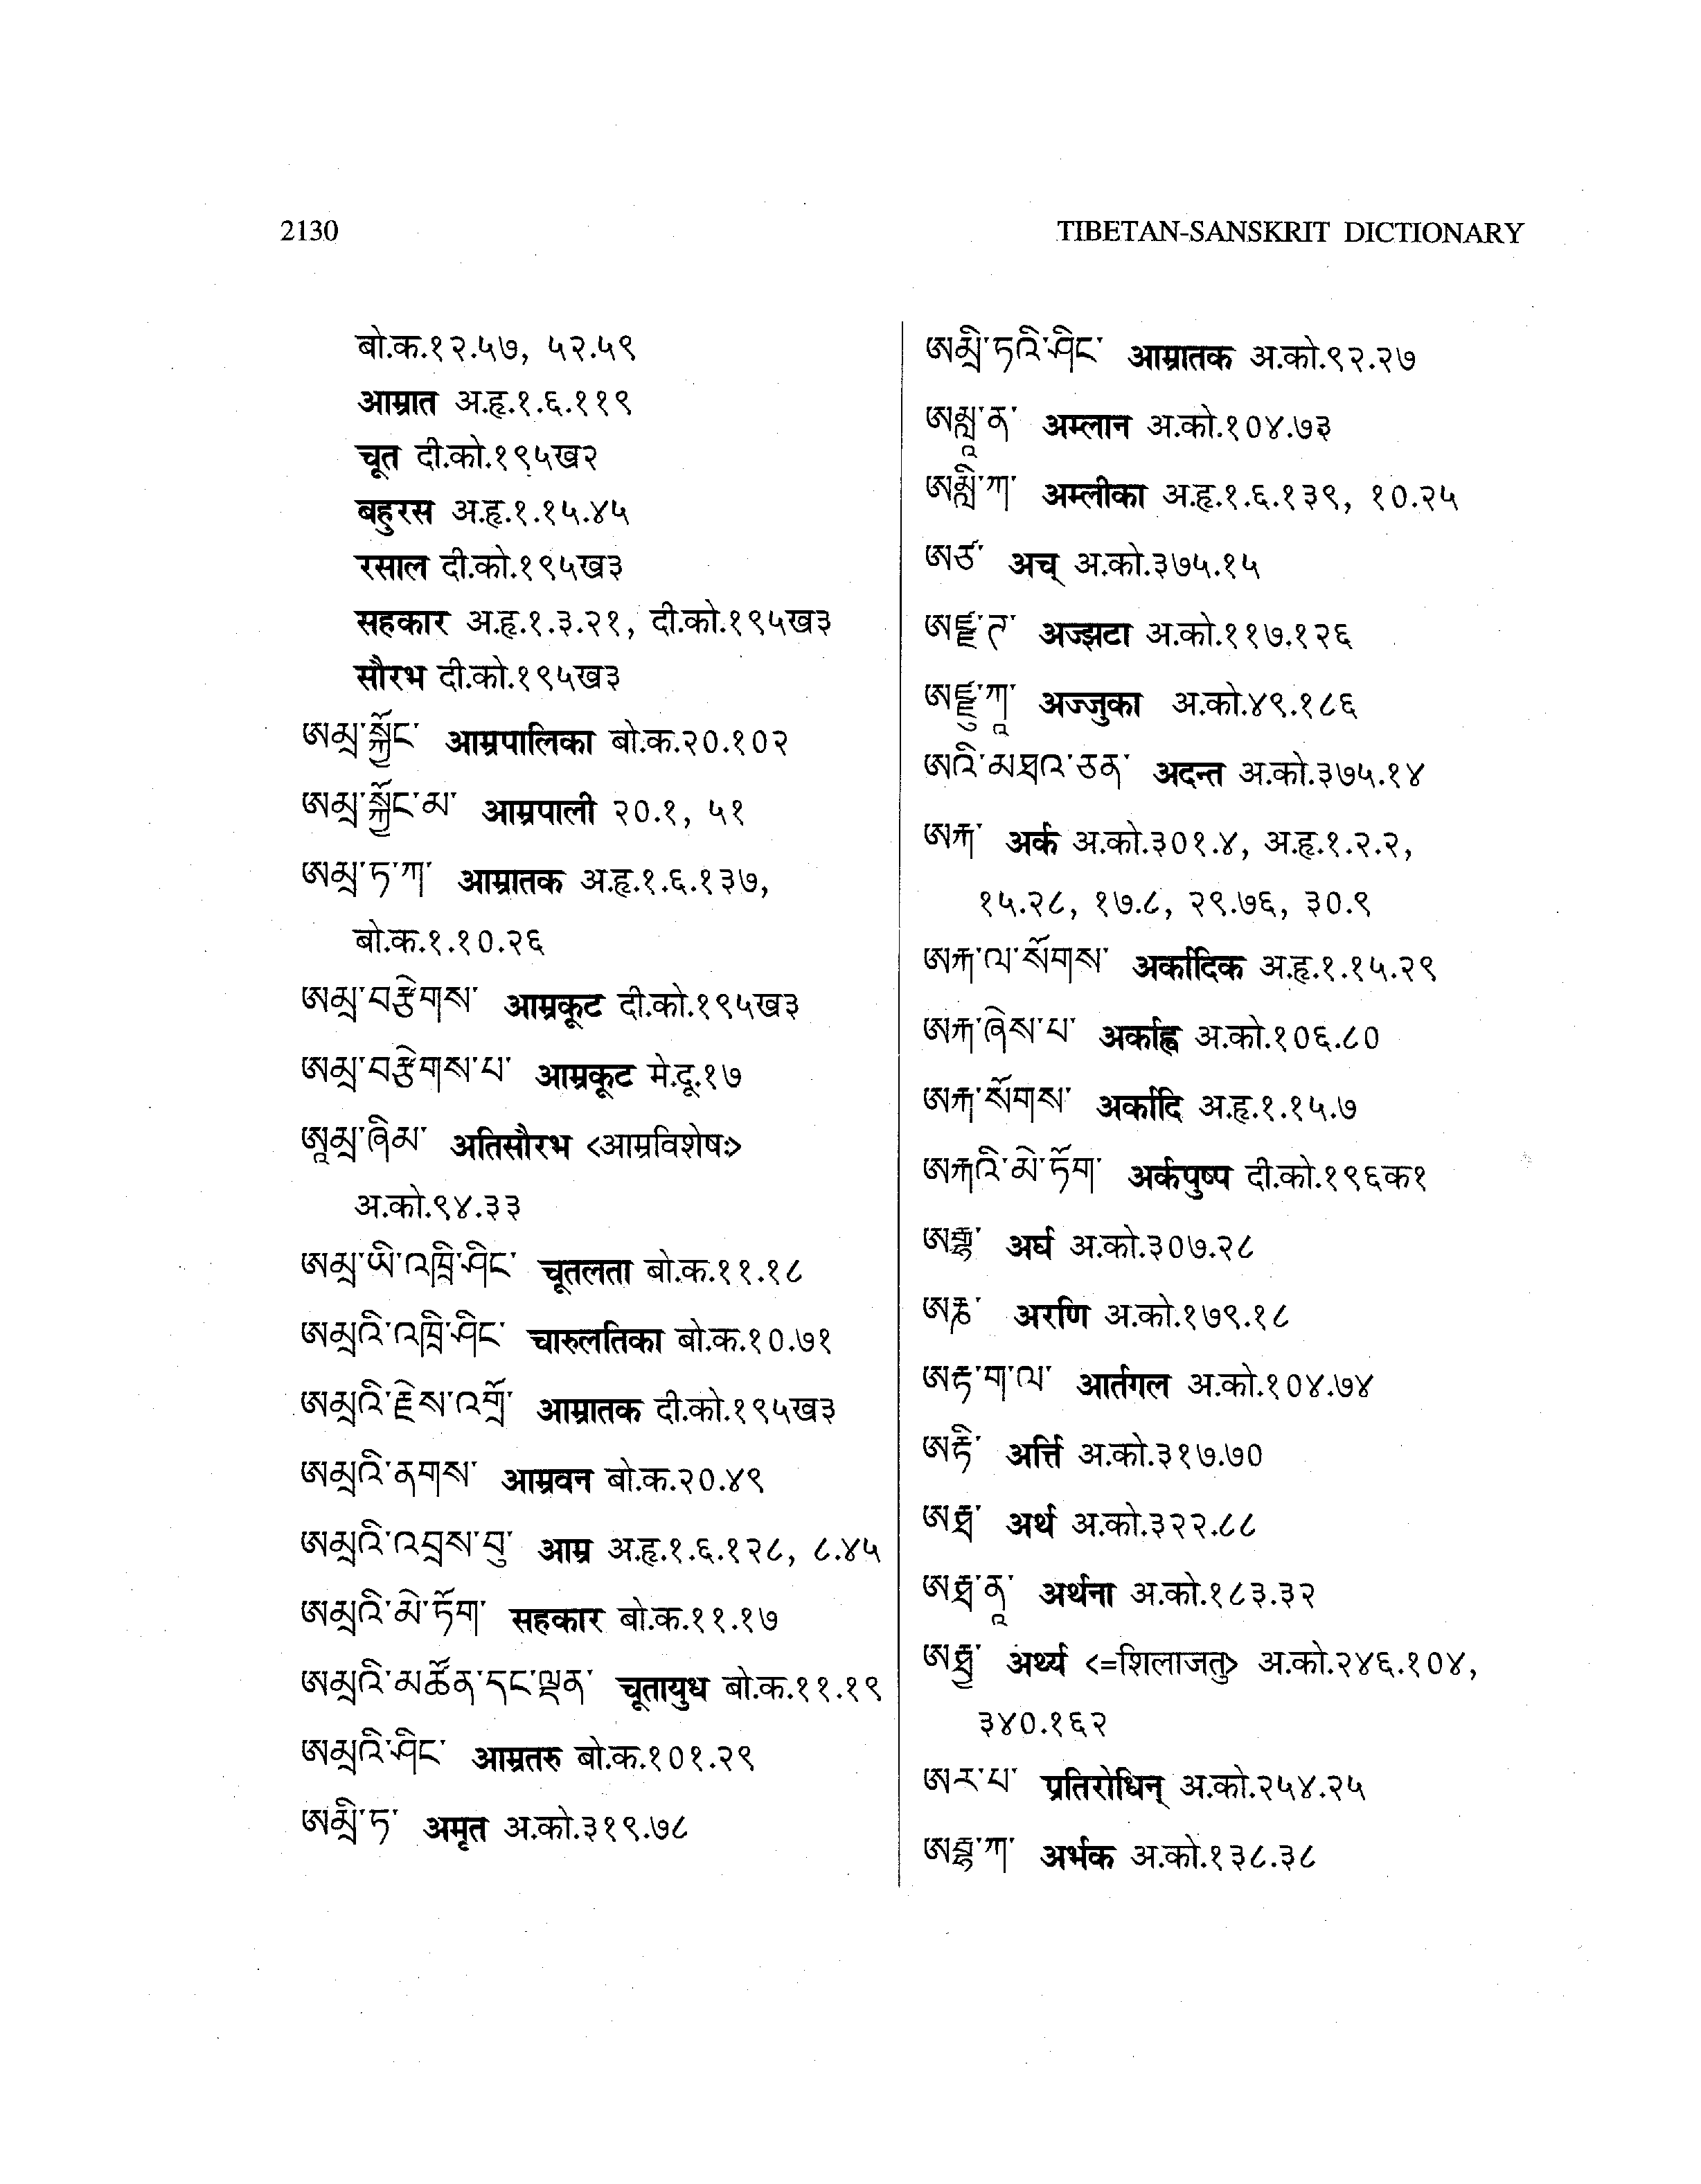 2130
TIBETAN-SANSKRIT DICTIONARY
बो.क.१२.५७, ५२.५९
आम्रात अ.हृ.१.६.११९
चूत दी.को.१९५ख२
बहुरस अ.हृ.१.१५.४५
रसाल दी.को.१९५ख३
सहकार अ.हृ.१.३.२१, दी.को.१९५ख३
सौरभ दी.को.१९५ख३
ཨམྲ་སྐྱོང་ आम्रपालिका बो.क.२०.१०२
ཨམྲ་སྐྱོང་མ་ आम्रपाली २०.१, ५१
ཨམྲ་ཏ་ཀ་ आम्रातक अ.हृ.१.६.१३७,
बो.क.१.१०.२६
ཨམྲ་བརྩེགས་ आम्रकूट दी.को.१९५ख३
ཨམྲ་བརྩེགས་པ་ आम्रकूट मे.दू.१७
ཨཱམྲ་ཞིམ་ अतिसौरभ <आम्रविशेषः>
अ.को.९४.३३
ཨམྲ་ཡི་འཁྲི་ཤིང་ चूतलता बो.क.११.१८
ཨམྲའི་འཁྲི་ཤིང་ चारुलतिका बो.क.१०.७१
ཨམྲའི་རྗེས་འགྲོ་ आम्रातक दी.को.१९५ख३
ཨམྲའི་ནགས་ आम्रवन बो.क.२०.४९
ཨམྲའི་འབྲས་བུ་ आम्र अ.हृ.१.६.१२८, ८.४५
ཨམྲའི་མེ་ཏོག་ सहकार बो.क.११.१७
ཨམྲའི་མཚོན་དང་ལྡན་ चूतायुध बो.क.११.१९
ཨམྲའི་ཤིང་ आम्रतरु बो.क.१०१.२९
ཨམྲི་ཏ་ अमृत अ.को.३१९.७८
ཨམྲི་ཏའི་ཤིང་ आम्रातक अ.को.९२.२७
ཨམླཱ་ན་ अम्लान अ.को.१०४.७३
ཨམླི་ཀ་ अम्लीका अ.हृ.१.६.१३९, १०.२५
ཨཙ་ अच् अ.को.३७५.१५
ཨཛྫ་ཊ་ अज्झटा अ.को.११७.१२६
ཨཛྫུ་ཀཱ་ अज्जुका अ.को.४९.१८६
ཨའི་མཐའ་ཅན་ अदन्त अ.को.३७५.१४
ཨརྐ་ अर्क अ.को.३०१.४, अ.हृ.१.२.२,
१५.२८, १७.८, २९.७६, ३०.९
ཨརྐ་ལ་སོགས་ अर्कादिक अ.हृ.१.१५.२९
ཨརྐ་ཞེས་པ་ अर्काह्व अ.को.१०६.८०
ཨརྐ་སོགས་ अर्कादि अ.हृ.१.१५.७
ཨརྐའི་མེ་ཏོག་ अर्कपुष्प दी.को.१९६क१
ཨརྒྷ་ अर्घ अ.को.३०७.२८
अरणि अ.को.१७९.१८
ཨརྟ་ག་ལ་ आर्तगल अ.को.१०४.७४
ཨརྟི་ अर्त्ति अ.को.३१७.७०
ཨརྠ་ अर्थ अ.को.३२२.८८
ཨརྠ་ནཱ་ अर्थना अ.को.१८३.३२
ཨརྠྱ་ अर्थ्य <=शिलाजतु> अ.को.२४६.१०४,
३४०.१६२
ཨར་པ་ प्रतिरोधिन् अ.को.२५४.२५
ཨརྦྷ་ཀ་ अर्भक अ.को.१३८.३८